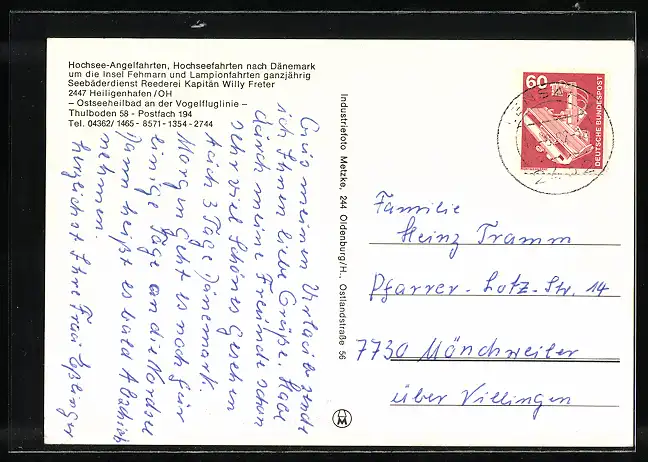 Hochsee-Angelfahrten, Hochseefahrten nach Dänemark
um die Insel Fehmarn und Lampionfahrten ganzjährig
Seebäderdienst Reederei Kapitän Willy Freter
2447 Heiligenhafen/OH
– Ostseeheilbad an der Vogelfluglinie –
Thulboden 58 - Postfach 194
Tel. 04362/1465 - 8571 - 1354 - 2744
Aus meinen Urlaub sende
ich Ihnen liebe Grüße. Habe
durch meine Freunde schon
sehr viel Schönes gesehen
Auch 3 Tage Dänemark.
Morgen geht es noch für
einige Tage an die Nordsee
Dann heißt es bald Abschied
nehmen.
Herzlichst Ihre Frau Eßlinger
Industriefoto Metzke, 244 Oldenburg/H., Ostlandstraße 56
60
DEUTSCHE BUNDESPOST
Familie
Heinz Tramm
Pfarrer-Lotz-Str. 14
7730 Mönchweiler
über Villingen
M